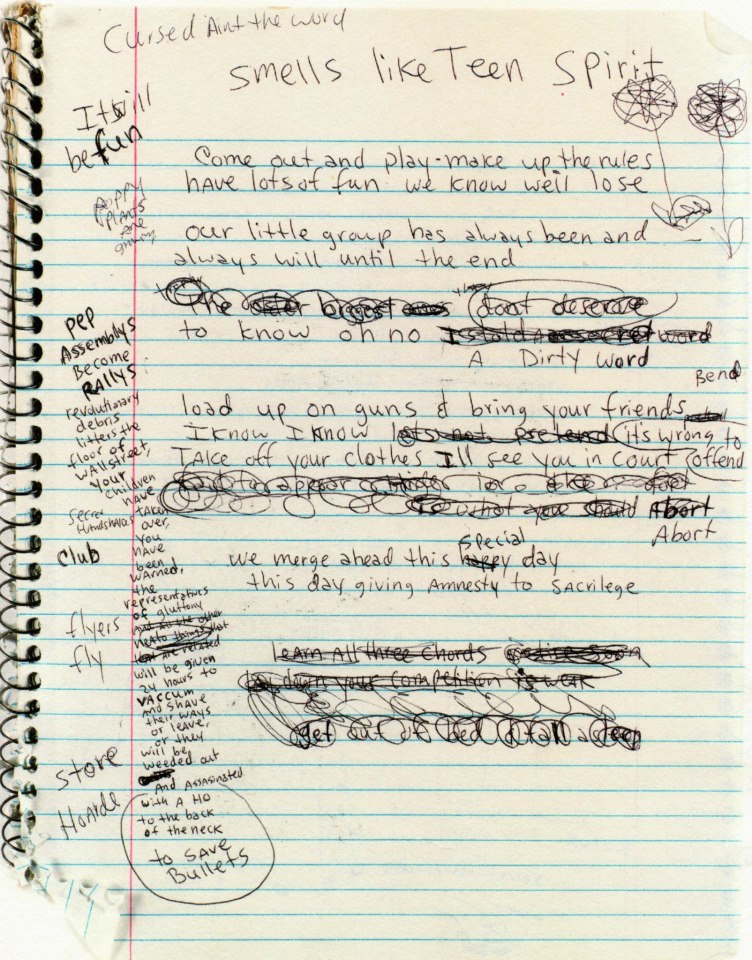 Cursed Aint the word
Smells like Teen Spirit
It will
be fun
Come out and play-make up the rules
have lots of fun we know we'll lose
Poppy
Plants
are
our little group has always been and
always will until the end
they
The biggest dont deserve
to know oh no Is old secret word
A Dirty word
Bend
load up on guns & bring your friends
I know I know lets not pretend it's wrong to
Take off your clothes I'll see you in court offend
to appear
to what you should Abort
Abort
special
we merge ahead this happy day
this day giving Amnesty to SAcrilege
learn All three Chords
down your competition is weak
get out of bed
pep
Assemblys
Become
RAllys:
revolutionary
debris
litters the
floor of
wallstreet,
your
children
have
taken
over,
you
have
been
warned.
the
representatives
of gluttony
and all the other
things that
are related
will be given
24 hours to
VAccum
and shave
their ways
or leave,
or they
will be
weeded out
And Assasinated
with A Ho
to the back
of the neck
to SAve
Bullets
Secret
Club
flyers
fly
store
HoArde